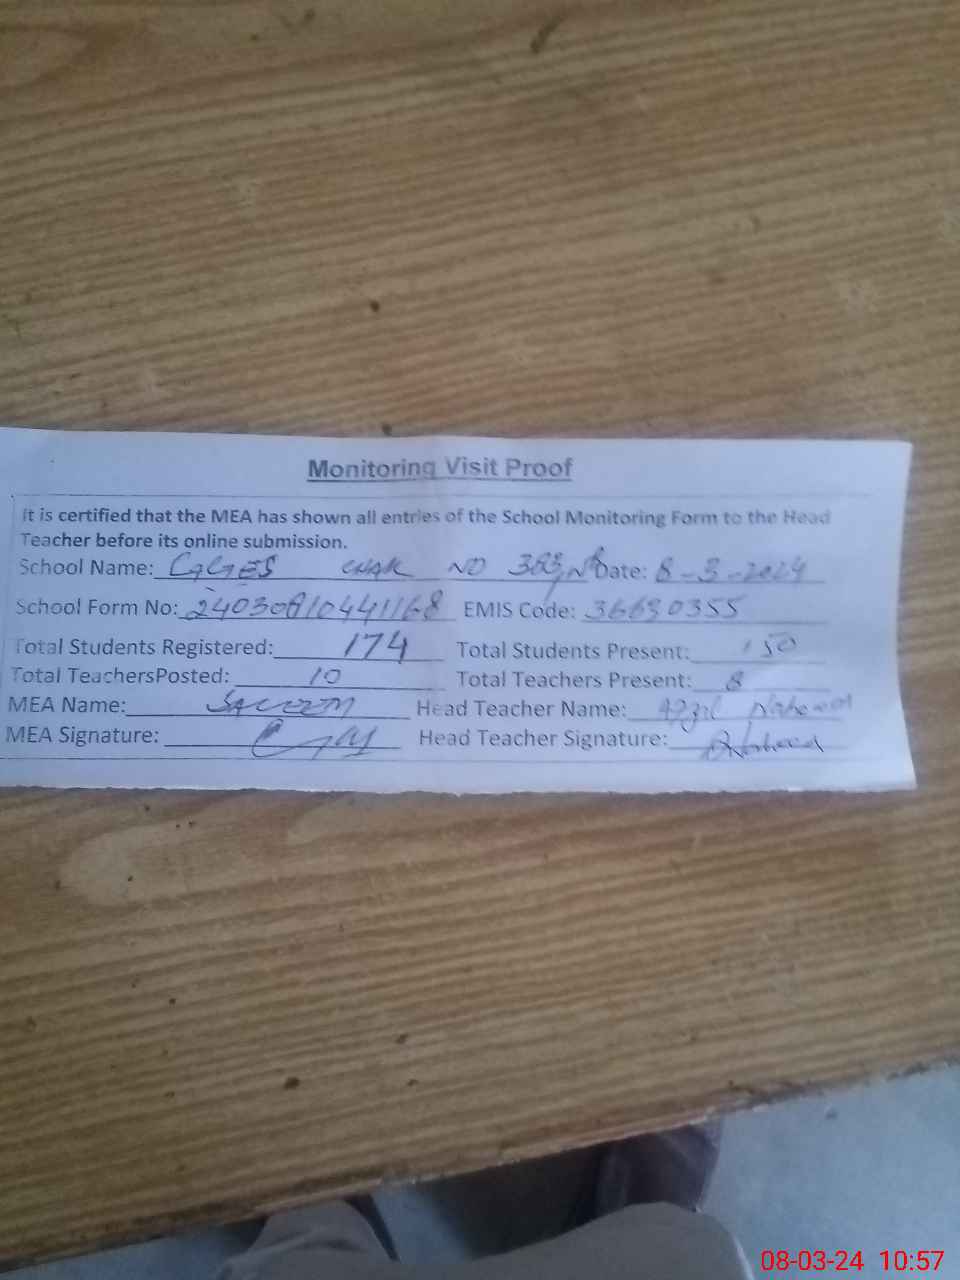 Monitoring Visit Proof
It is certified that the MEA has shown all entries of the School Monitoring Form to the Head
Teacher before its online submission.
School Name: GGES CHAK NO Date: 8-3-2024
School Form No: 24030810441168 EMIS Code: 36630355
Total Students Registered: 174 Total Students Present: 150
Total TeachersPosted: 10 Total Teachers Present: 8
MEA Name: Head Teacher Name: Naheed
MEA Signature: Head Teacher Signature:
08-03-24 10:57